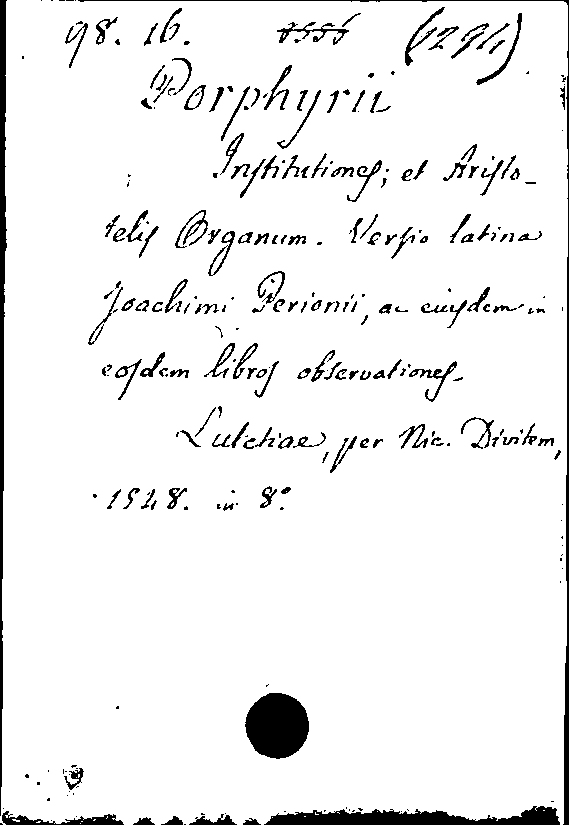 98. 16. (1294)
Porphyrii
Institutiones; et Aristo-
telis Organum. Versio latina
Joachimi Perionii, ac eiusdem in
eosdem libros observationes.
Lutetiae, per Nic. Divitem,
1548. in 8°.